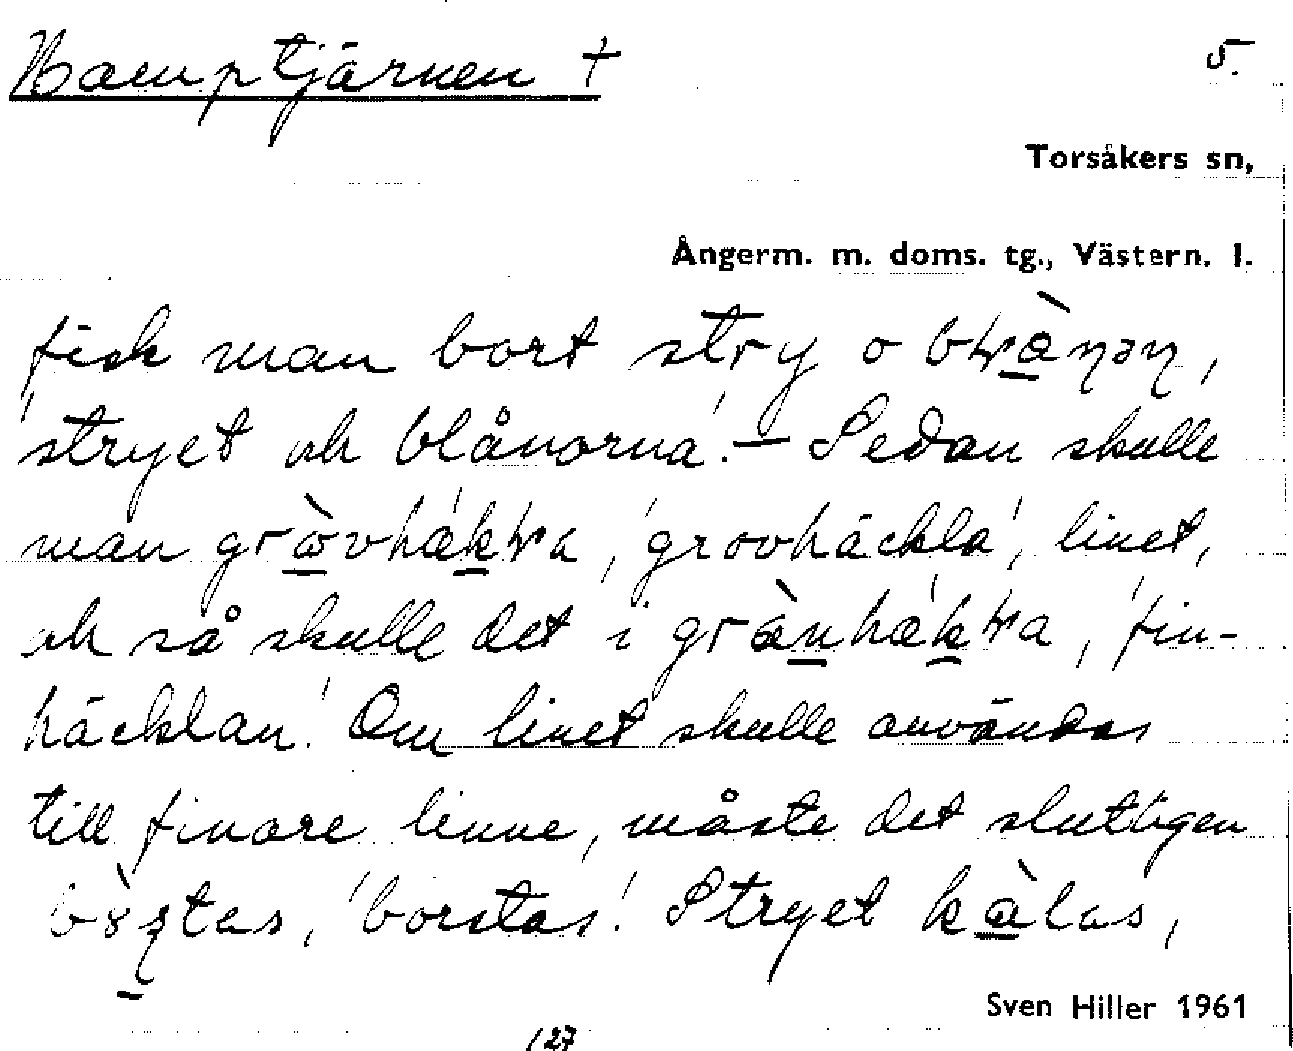 Hamptjärnen +
5.
Torsåkers sn,
Ångerm. m. doms. tg., Västern. l.
fick man bort stry o
'stryet och blånorna'. — Sedan skulle
man 'grovhäckla', linet,
och så skulle det i 'fin-
häcklan'. Om linet skulle användas
till finare linne, måste det slutligen
'borstas'. Stryet kàlas,
Sven Hiller 1961
127